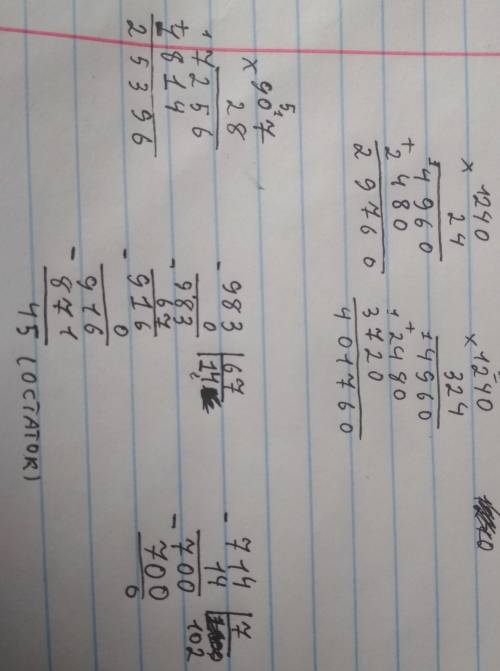 1240
× 24
4960
+ 2480
29760
1240
× 324
4960
+ 2480
3720
401760
907
× 28
7256
+ 1814
25396
- 983 | 67
0 | 14
- 983
67
- 916
0
- 916
871
45 (остаток)
- 714 | 7
14 | 102
- 700
700
0